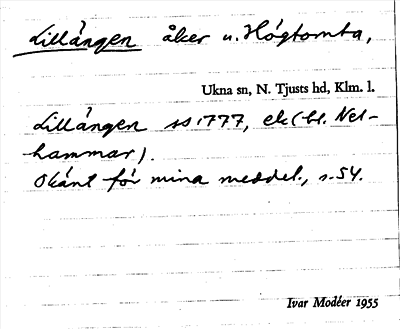 Lillången åker u. Högtomta,
Ukna sn, N. Tjusts hd, Klm. l.
Lillången ss 1777, ek (bl. Nel-
hammar).
Okänt för mina meddel., s. 54.
Ivar Modéer 1955